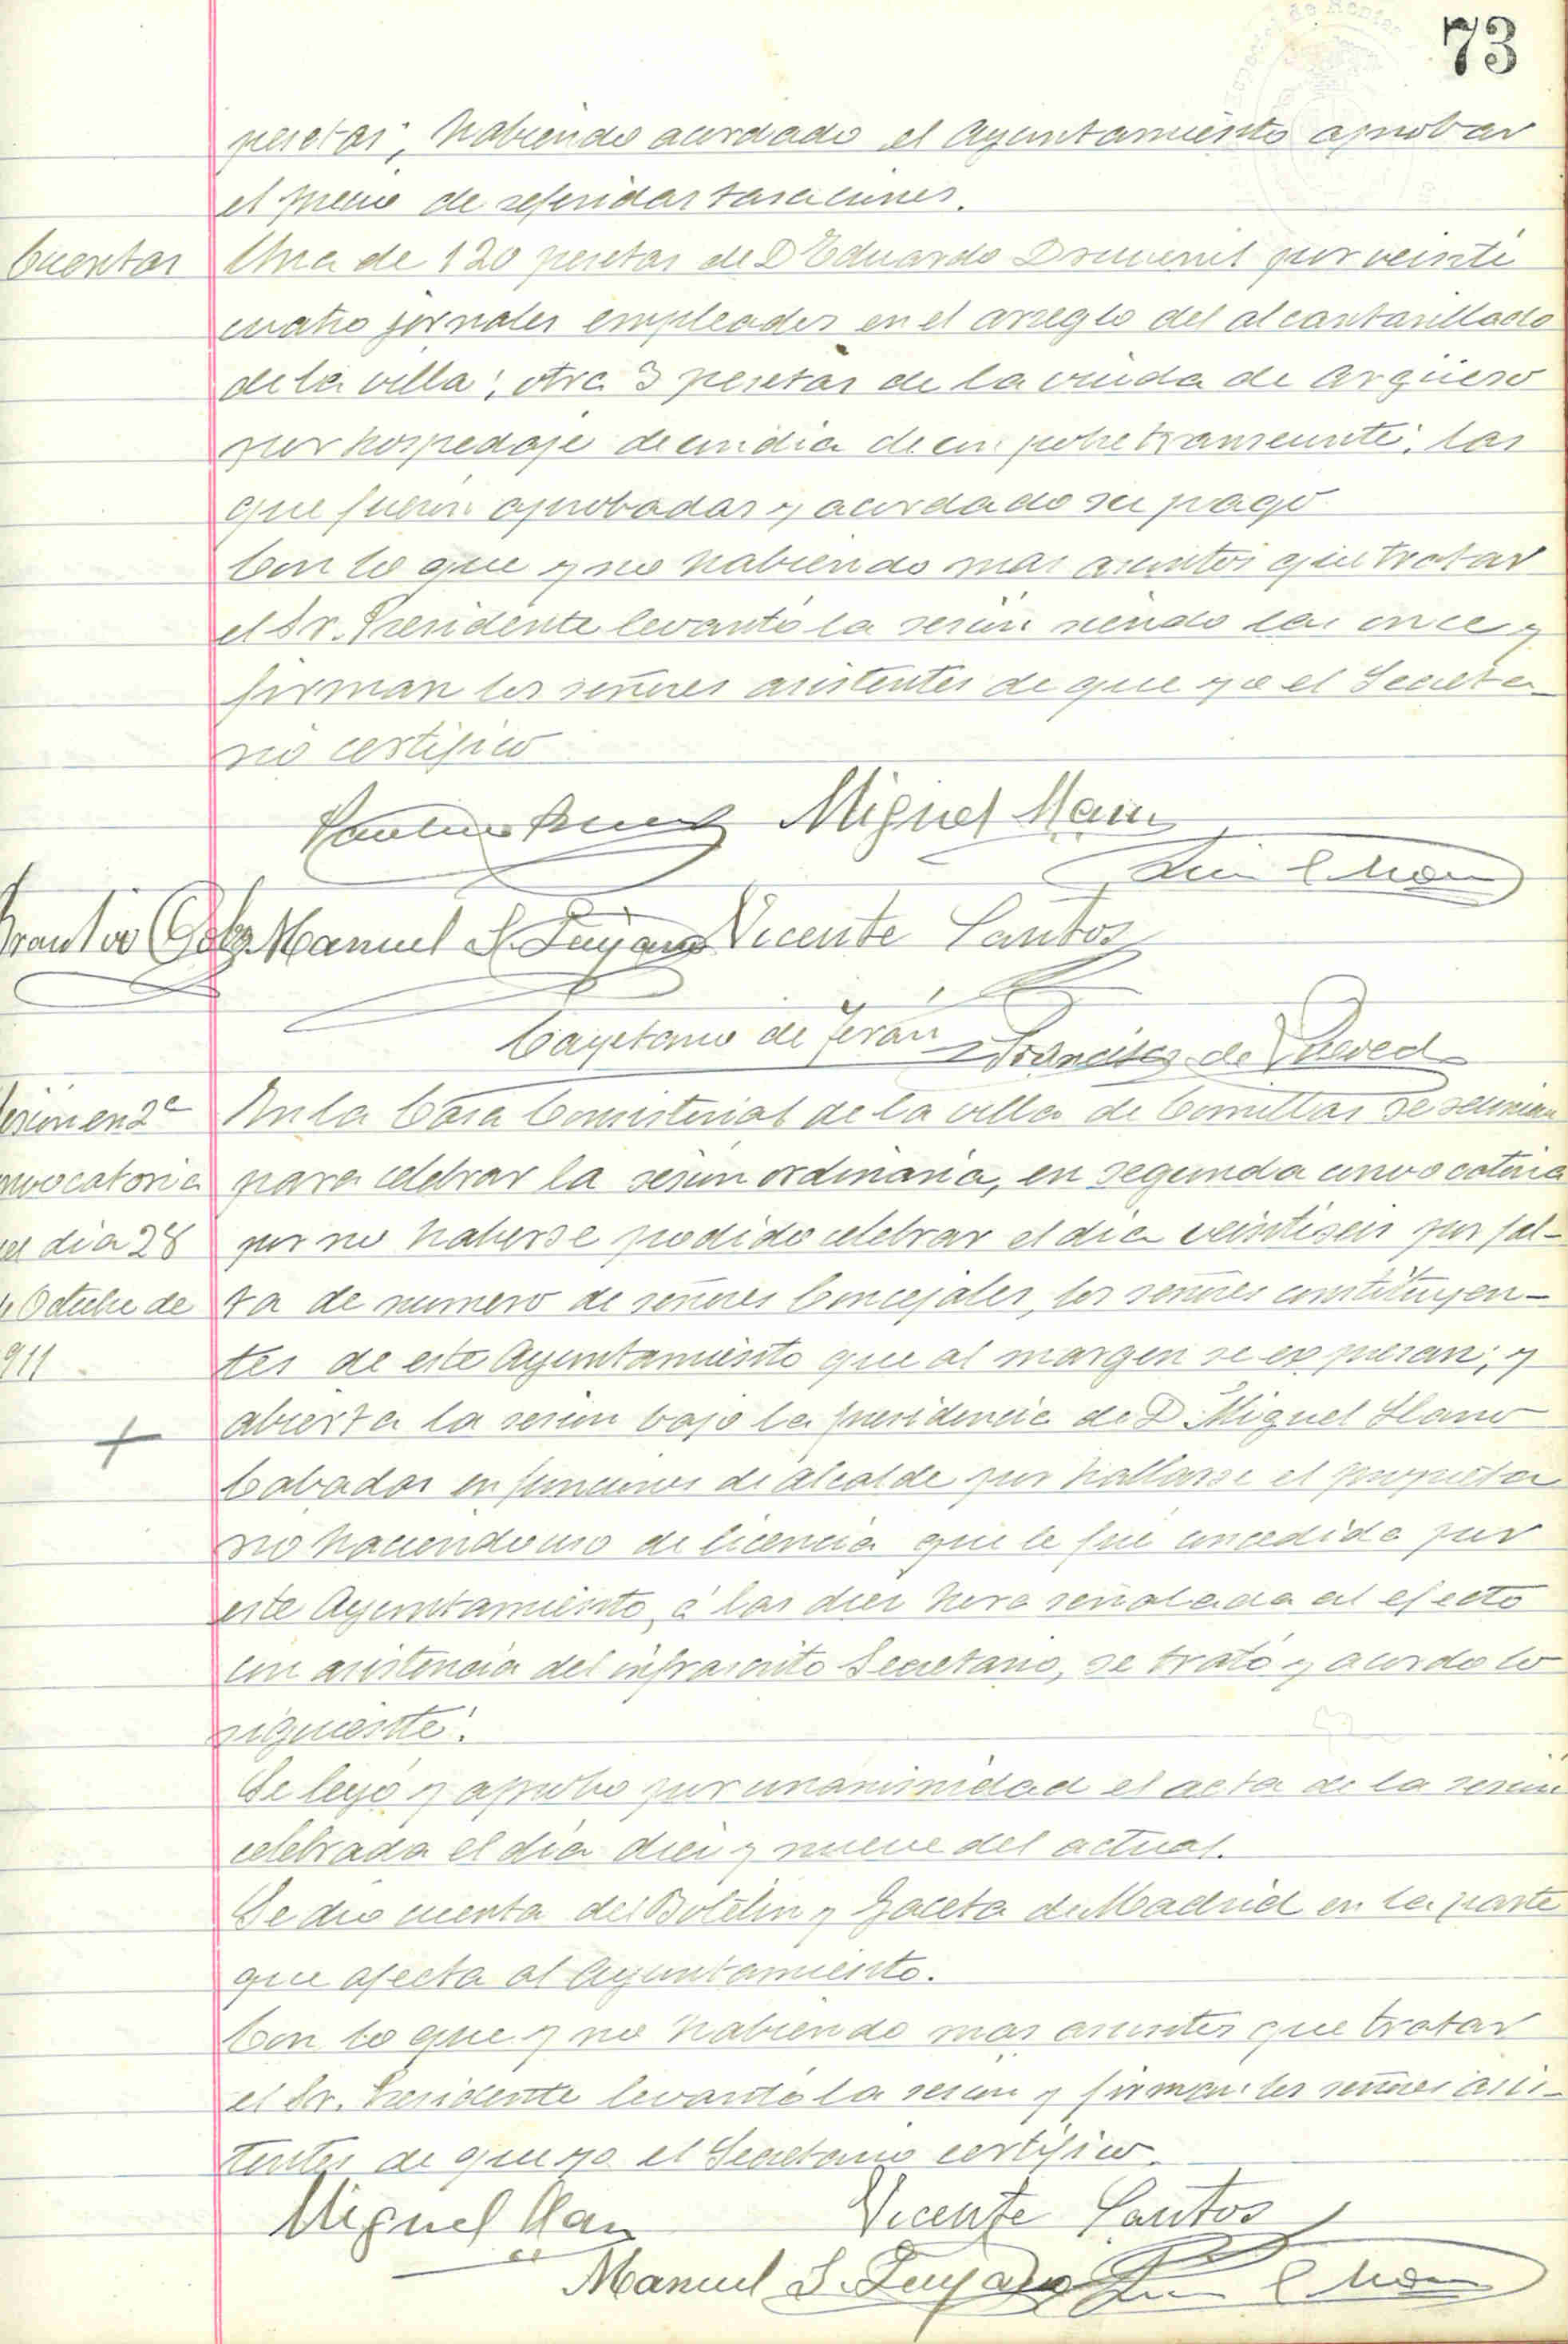 73
pesetas; habiendo acordado el Ayuntamiento aprobar
el precio de referidas tasaciones.
Cuentas
Una de 120 pesetas de D Eduardo por veinti
cuatro jornales empleados en el arreglo del alcantarillado
de la villa; otra 3 pesetas de la viuda de Argüeso
por hospedaje de un dia de un pobre transeunte; las
que fueron aprobadas y acordado su pago
Con lo que y no habiendo mas asuntos que tratar
el Sr. Presidente levantó la sesión siendo las once y
firman los señores asistentes de que yo el Secreta-
rio certifico
Miguel Llano
Braulio Manuel S. Vicente Santos
Cayetano de Terán Francisco de
sión en 2ª
nvocatoria
el dia 28
Octubre de
911
En la Casa Consistorial de la villa de Comillas se reunieron
para celebrar la sesión ordinaria, en segunda convocatoria
por no haberse podido celebrar el dia veintiseis por fal-
ta de numero de señores Concejales, los señores constituyen-
tes de este Ayuntamiento que al margen se expresan; y
abierta la sesion bajo la presidencia de D. Miguel Llano
Cabadas en funciones de alcalde por hallarse el propieta
rio haciendo uso de licencia que le fué concedida por
este Ayuntamiento, á las diez hora señalada al efecto
con asistencia del infrascrito Secretario, se trató y acordo lo
siguiente:
Se leyó y aprobo por unanimidad el acta de la sesion
celebrada el día diez y nueve del actual.
Se dio cuenta del Boletin y Gaceta de Madrid en la parte
que afecta al Ayuntamiento.
Con lo que y no habiendo mas asuntos que tratar
el Sr. Presidente levantó la sesion y firman los señores asis-
tentes de que yo el Secretario certifico.
Miguel Llano Vicente Santos
Manuel S.